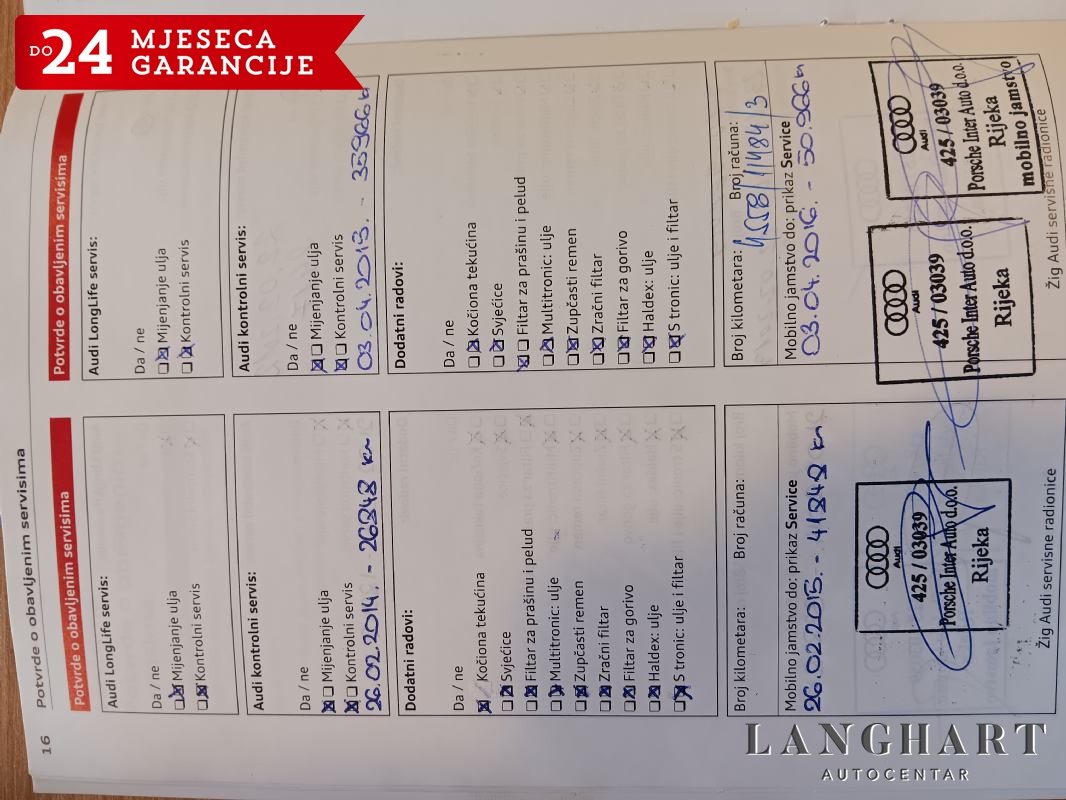 DO 24 MJESECA
GARANCIJE
16
Potvrde o obavljenim servisima
Potvrde o obavljenim servisima
Audi LongLife servis:
Da / ne
Mijenjanje ulja
Kontrolni servis
Audi kontrolni servis:
Da / ne
Mijenjanje ulja
Kontrolni servis
26.02.2014. - 26848 km
Dodatni radovi:
Da / ne
Kočiona tekućina
Svjećice
Filtar za prašinu i pelud
Multitronic: ulje
Zupčasti remen
Zračni filtar
Filtar za gorivo
Haldex: ulje
S tronic: ulje i filtar
Broj kilometara: Broj računa:
Mobilno jamstvo do: prikaz Service
26.02.2015. - 41848 km
Audi
425 / 03039
Porsche Inter Auto d.o.o.
Rijeka
Žig Audi servisne radionice
Potvrde o obavljenim servisima
Audi LongLife servis:
Da / ne
Mijenjanje ulja
Kontrolni servis
Audi kontrolni servis:
Da / ne
Mijenjanje ulja
Kontrolni servis
03.04.2015. - 35966 km
Dodatni radovi:
Da / ne
Kočiona tekućina
Svjećice
Filtar za prašinu i pelud
Multitronic: ulje
Zupčasti remen
Zračni filtar
Filtar za gorivo
Haldex: ulje
S tronic: ulje i filtar
Broj kilometara: Broj računa:
Mobilno jamstvo do: prikaz Service
03.04.2016. - 50.966 km
Audi
425 / 03039
Porsche Inter Auto d.o.o.
Rijeka
Audi
425 / 03039
Porsche Inter Auto d.o.o.
Rijeka
mobilno jamstvo
Žig Audi servisne radionice
LANGHART
AUTOCENTAR